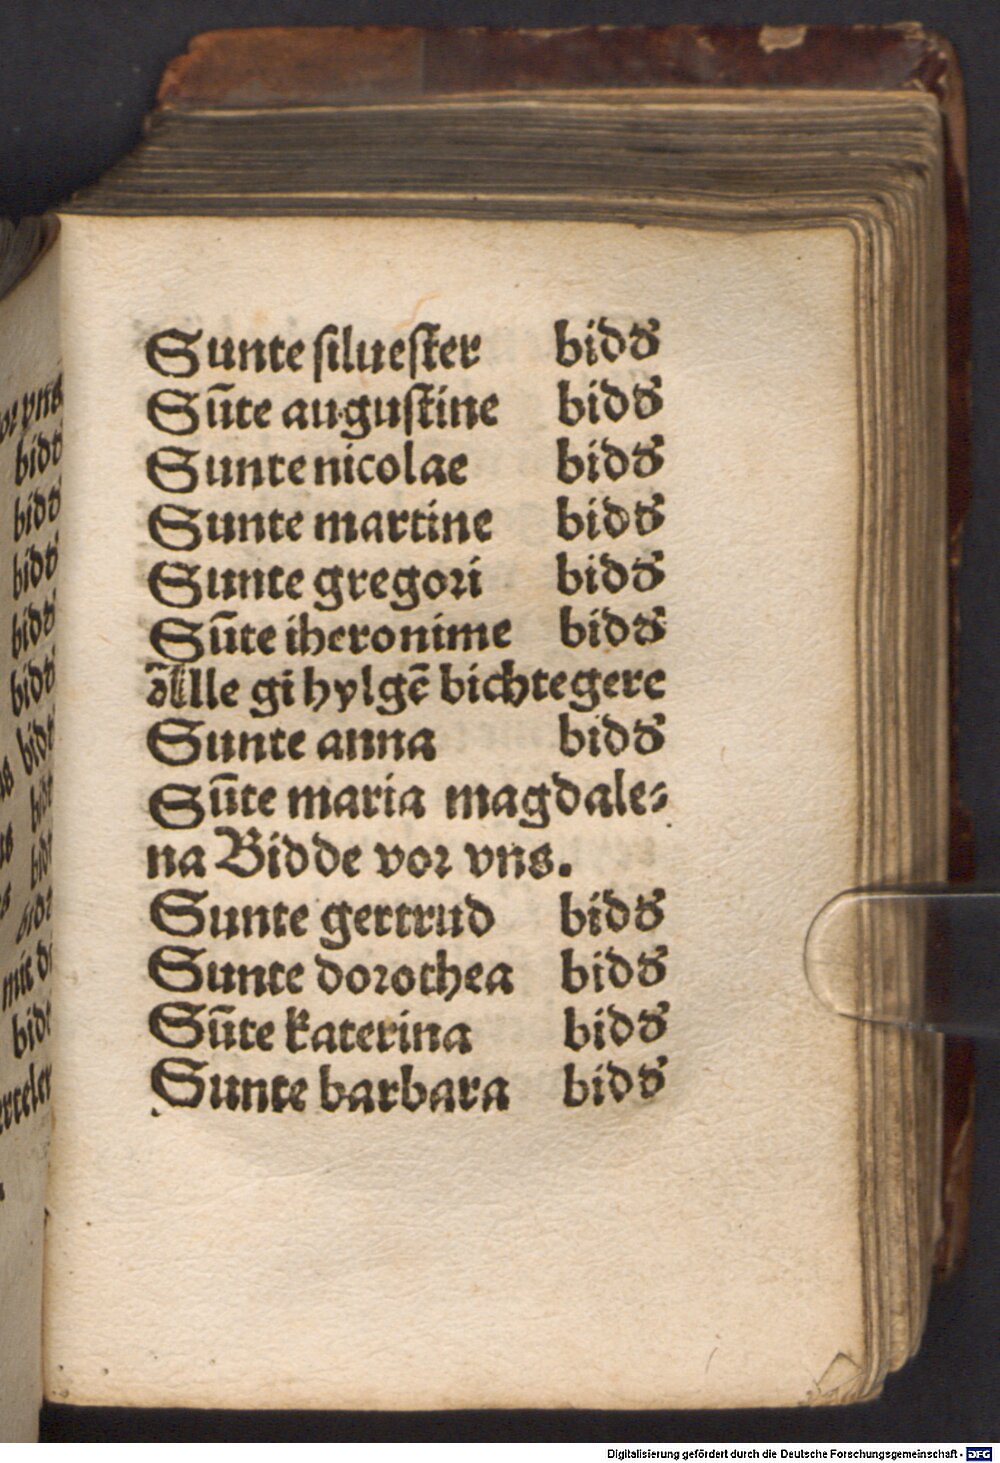 Sunte siluester bidd
Sūte augustine bidd
Sunte nicolae bidd
Sunte martine bidd
Sunte gregori bidd
Sūte iheronime bidd
Alle gi hylgē bichtegere
Sunte anna bidd
Sūte maria magdale⸗
na Bidde vor vns.
Sunte gertrud bidd
Sunte dorothea bidd
Sūte katerina bidd
Sunte barbara bidd
Digitalisierung gefördert durch die Deutsche Forschungsgemeinschaft - DFG